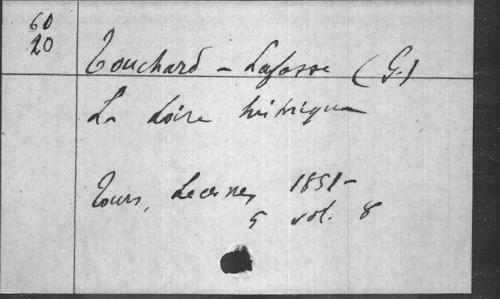 60
20
Touchard - Lafosse (G.)
La Loire historique
Tours, Lecesne, 1851-
5 vol. 8